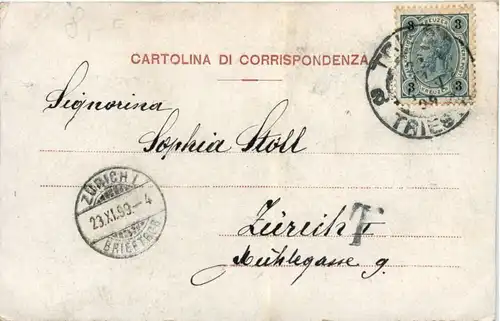 CARTOLINA DI CORRISPONDENZA
3 3
3 3
TRIEST
Signorina
Sophia Stoll
ZÜRICH I
23.XI.99.–4
BRIEFTRÄG
Zürich I
T
Mühlegasse 9.